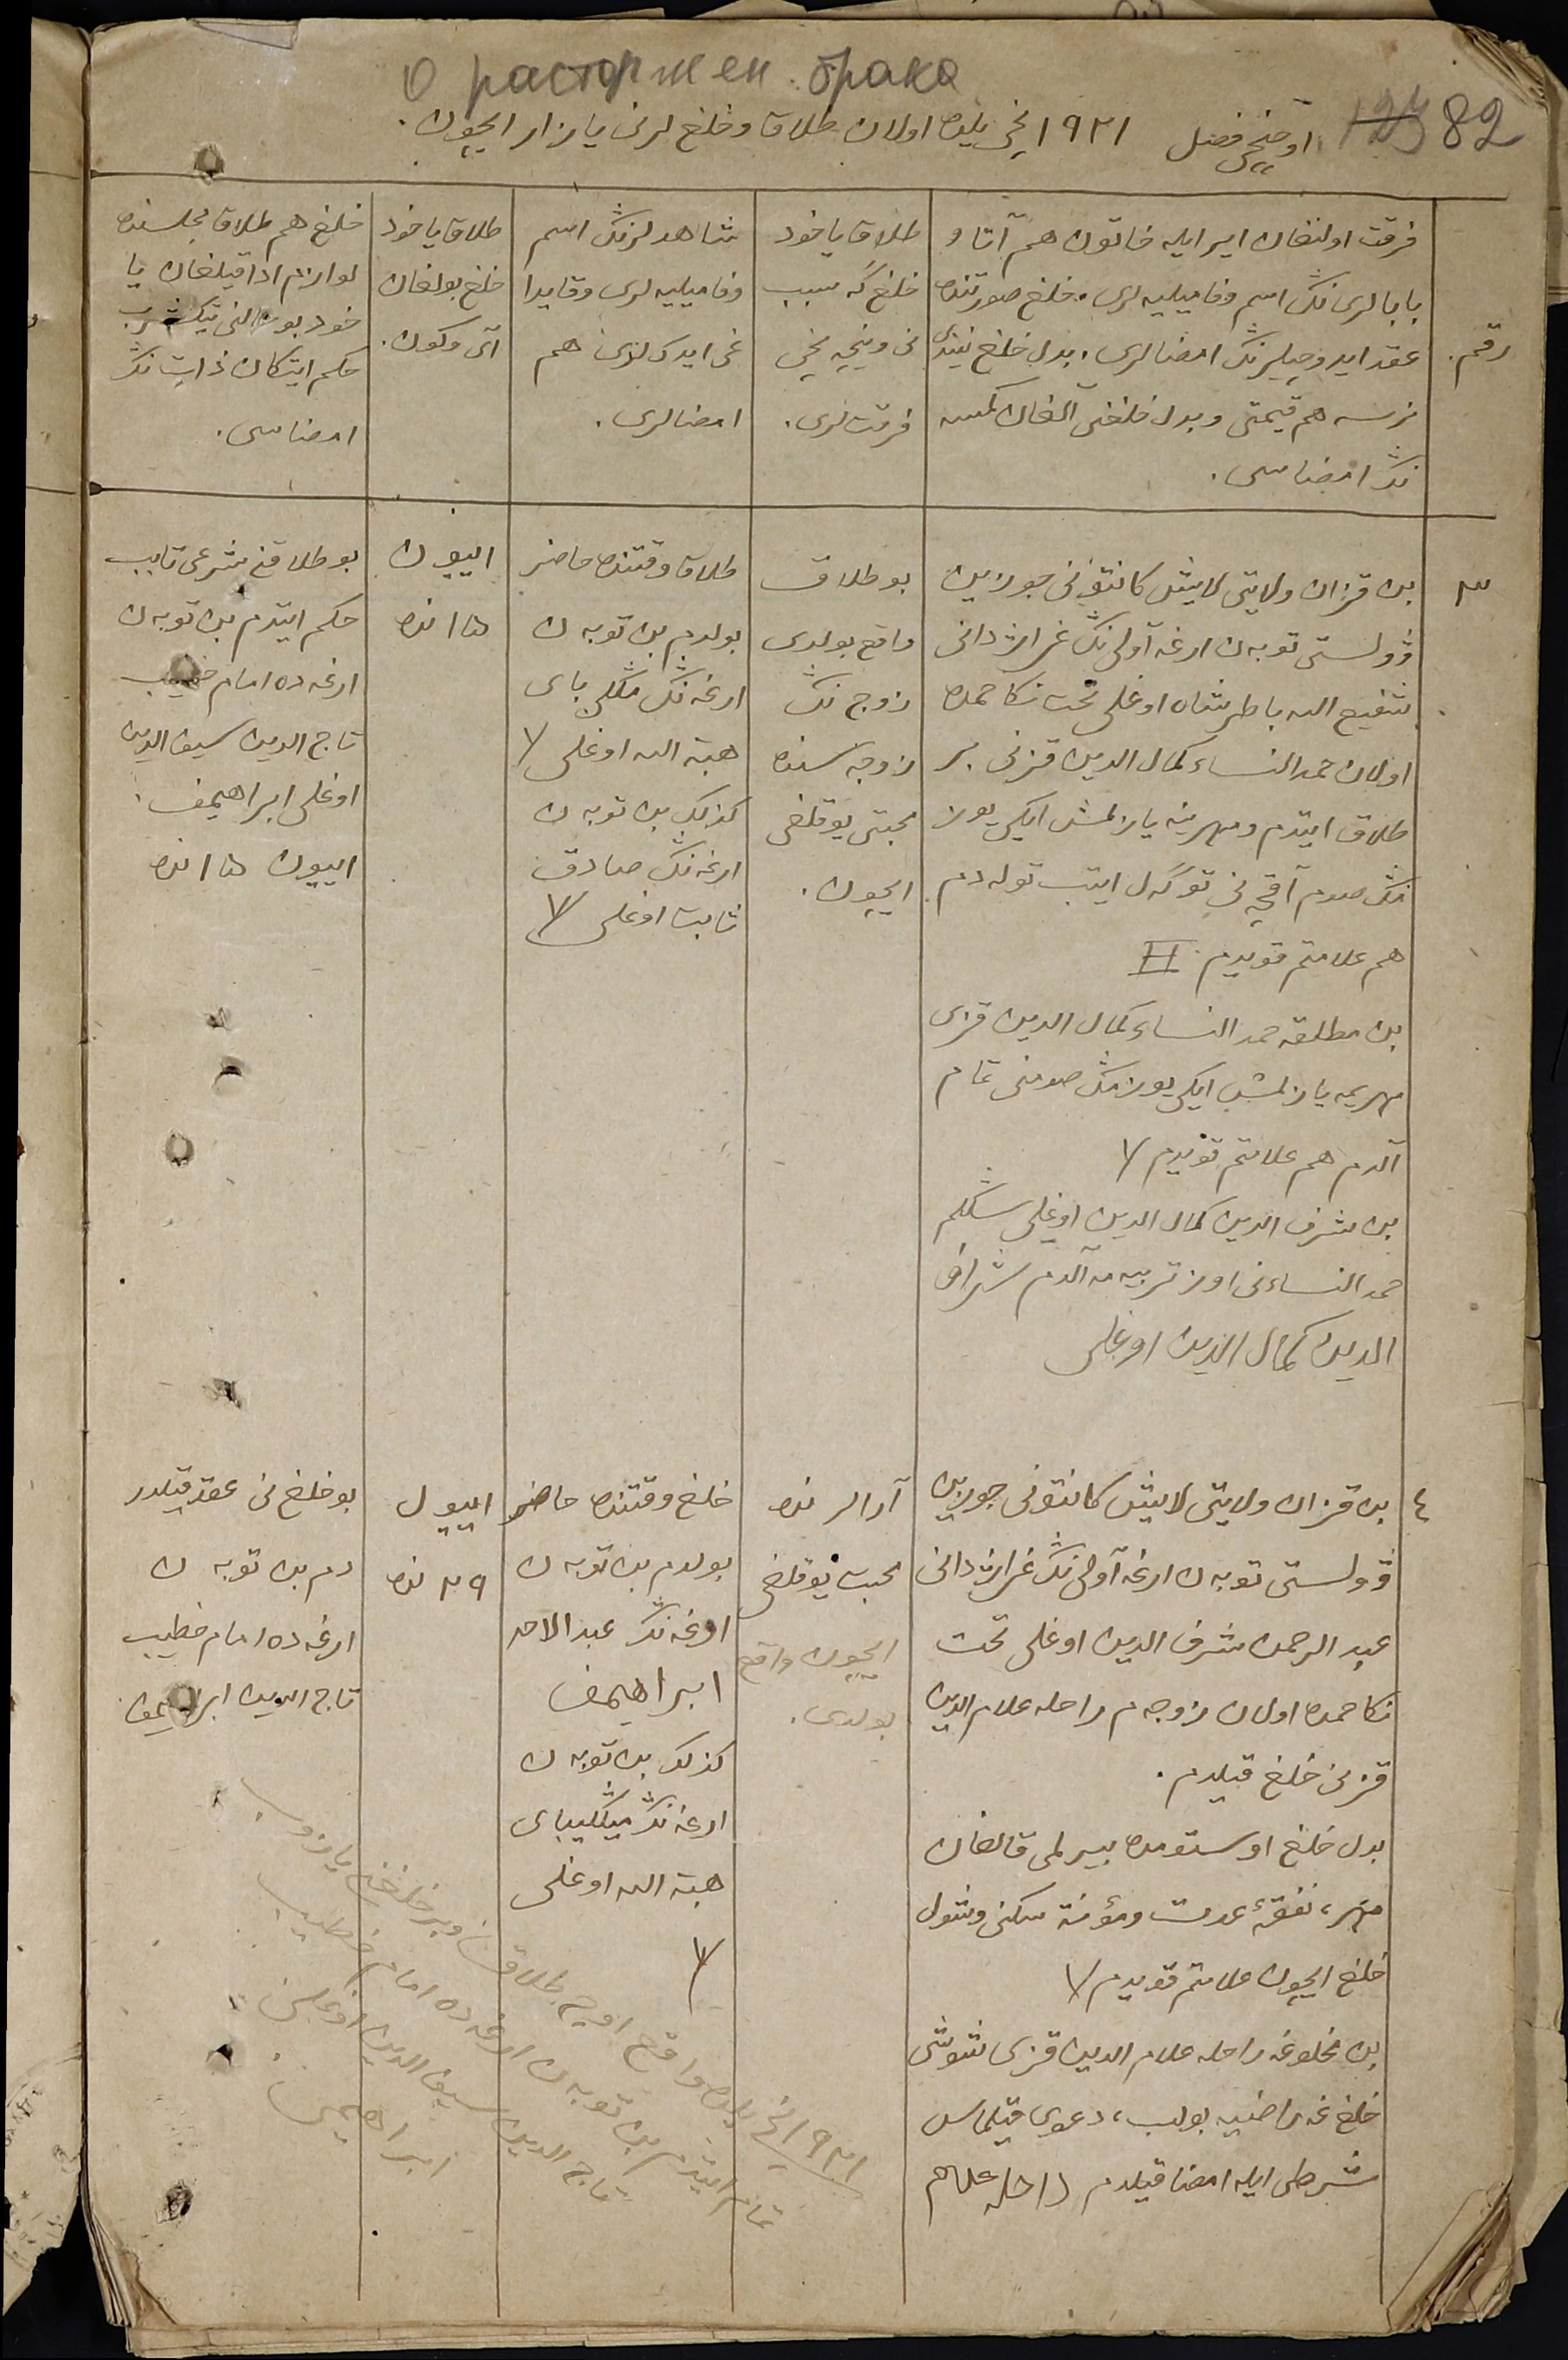 О расторжен. брака
82
اوچنچی فصل ۱۹۲۱ نچی یلده اولان طلاق وخلع لرنی یازار ایچون.
رقم.
فرقت اولنغان ایر ایله خاتون هم آتا و
بابالری ننڭ اسم وفامیلیه لری. خلع صورتنده
عقد ایدوچیلرننڭ امضالری. بدل خلع نیندی
نرسه هم قیمتی وبدل خلعنی آلغان کمسه
ننڭ امضاسی.
طلاق یاخود
خلع گه سبب
نی ونیچه نچی
فرقت لری.
شاهدلرننڭ اسم
وفامیلیه لری وقایدا
غی ایدکلری هم
امضالری.
طلاق یاخود
خلع بولغان
آی وکون.
خلع هم طلاق مجلسنده
لوازم ادا قیلغان یا
خود بو
حکم ایتکان ذات ننڭ
امضاسی.
۳
بن قزان ولایتی لایش کانتونی جورین
وولستی توبه ن ارغه آولی ننڭ غراژدانی
شفیع الله باطرشاه اوغلی تحت نکاحمده
اولان حمدالنساء کمال الدین قزنی بر
طلاق ایتدم ومهرینه یازلمش ایکی یوز
منڭ صوم آقچه نی توگه ل ایتب توله دم
هم علامتم قویدم
بن مطلقه حمدالنساء کمال الدین قزی
مهریمه یازلمش ایکی یوز منڭ صومنی تمام
آلدم هم علامتم قویدم
بن شرف الدین کمال الدین اوغلی سڭلم
حمدالنساءنی اوز تربیه مه آلدم شرف
الدین کمال الدین اوغلی
بو طلاق
واقع بولدی
زوج ننڭ
زوجه سنده
محبتی یوقلغی
ایچون.
طلاق وقتنده حاضر
بولدم بن توبه ن
ارغه ننڭ منڭلی بای
هبة الله اوغلی
کذلک بن توبه ن
ارغه ننڭ صادق
ثابت اوغلی
اییون
۱۵ نده
بو طلاقنی شرعی تابب
حکم ایتدم بن توبه ن
ارغه ده امام خطیب
تاج الدین سیف الدین
اوغلی ابراهیمف.
اییون ۱۵ نده
٤
بن قزان ولایتی لایش کانتونی جورین
وولستی توبه ن ارغه آولی ننڭ غراژدانی
عبد الرحمن شرف الدین اوغلی تحت
نکاحمده اولان زوجه م راحله علام الدین
قزنی خلع قیلدم.
بدل خلع اوستومده بیرلمی قالغان
مهر، نفقهٔ عدت ومؤنة سکنی وشول
خلع ایچون علامتم قویدم
بن مخلوعه راحله علام الدین قزی شوشی
خلع غه راضیه بولب، دعوی قیلماس
شرطی ایله امضا قیلدم راحله علام
آرالرنده
محبت یوقلغی
ایچون واقع
بولدی.
خلع وقتنده حاضر
بولدم بن توبه ن
ارغه ننڭ عبد الاحد
ابراهیمف
کذلک بن توبه ن
ارغه ننڭ مینڭلیبای
هبة الله اوغلی
اییول
۲۹ نده
بو خلع نی عقد قیلدر
دم بن توبه ن
ارغه ده امام خطیب
تاج الدین ابراهیمف
۱۹۲۱ نچی یلده واقع اوچ طلاقنی وبر خلعنی یازوب
تمام ایتدم بن توبه ن ارغه ده امام خطیب
تاج الدین سیف الدین اوغلی
ابراهیمف